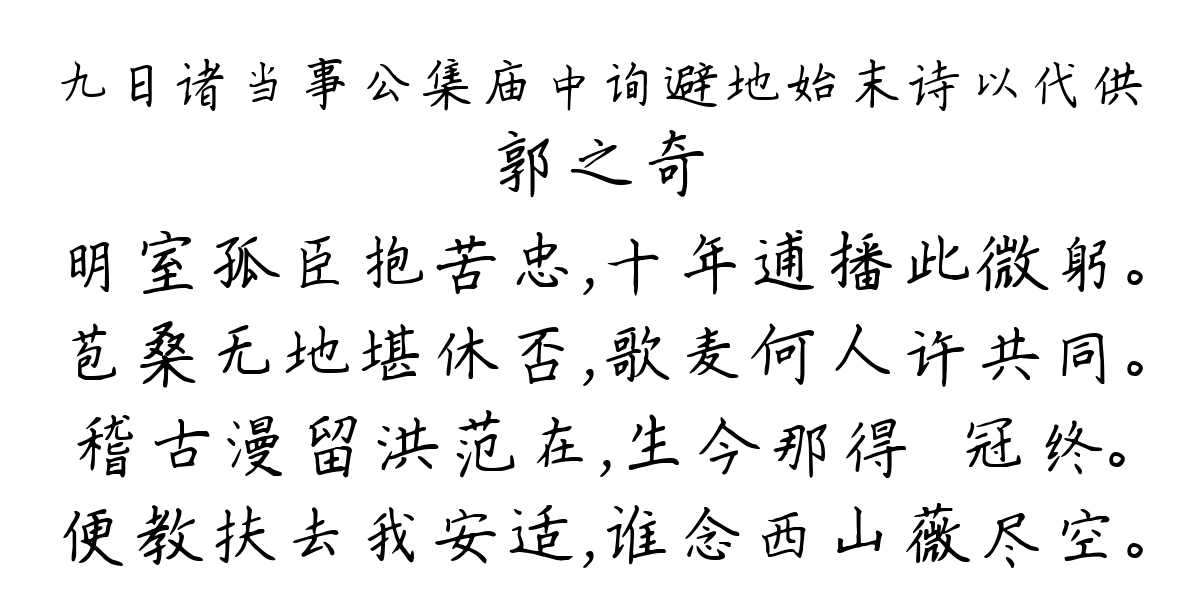 九日诸当事公集庙中询避地始末诗以代供
郭之奇
明室孤臣抱苦忠,十年逋播此微躬。
苞桑无地堪休否,歌麦何人许共同。
稽古漫留洪范在,生今那得 冠终。
便教扶去我安适,谁念西山薇尽空。